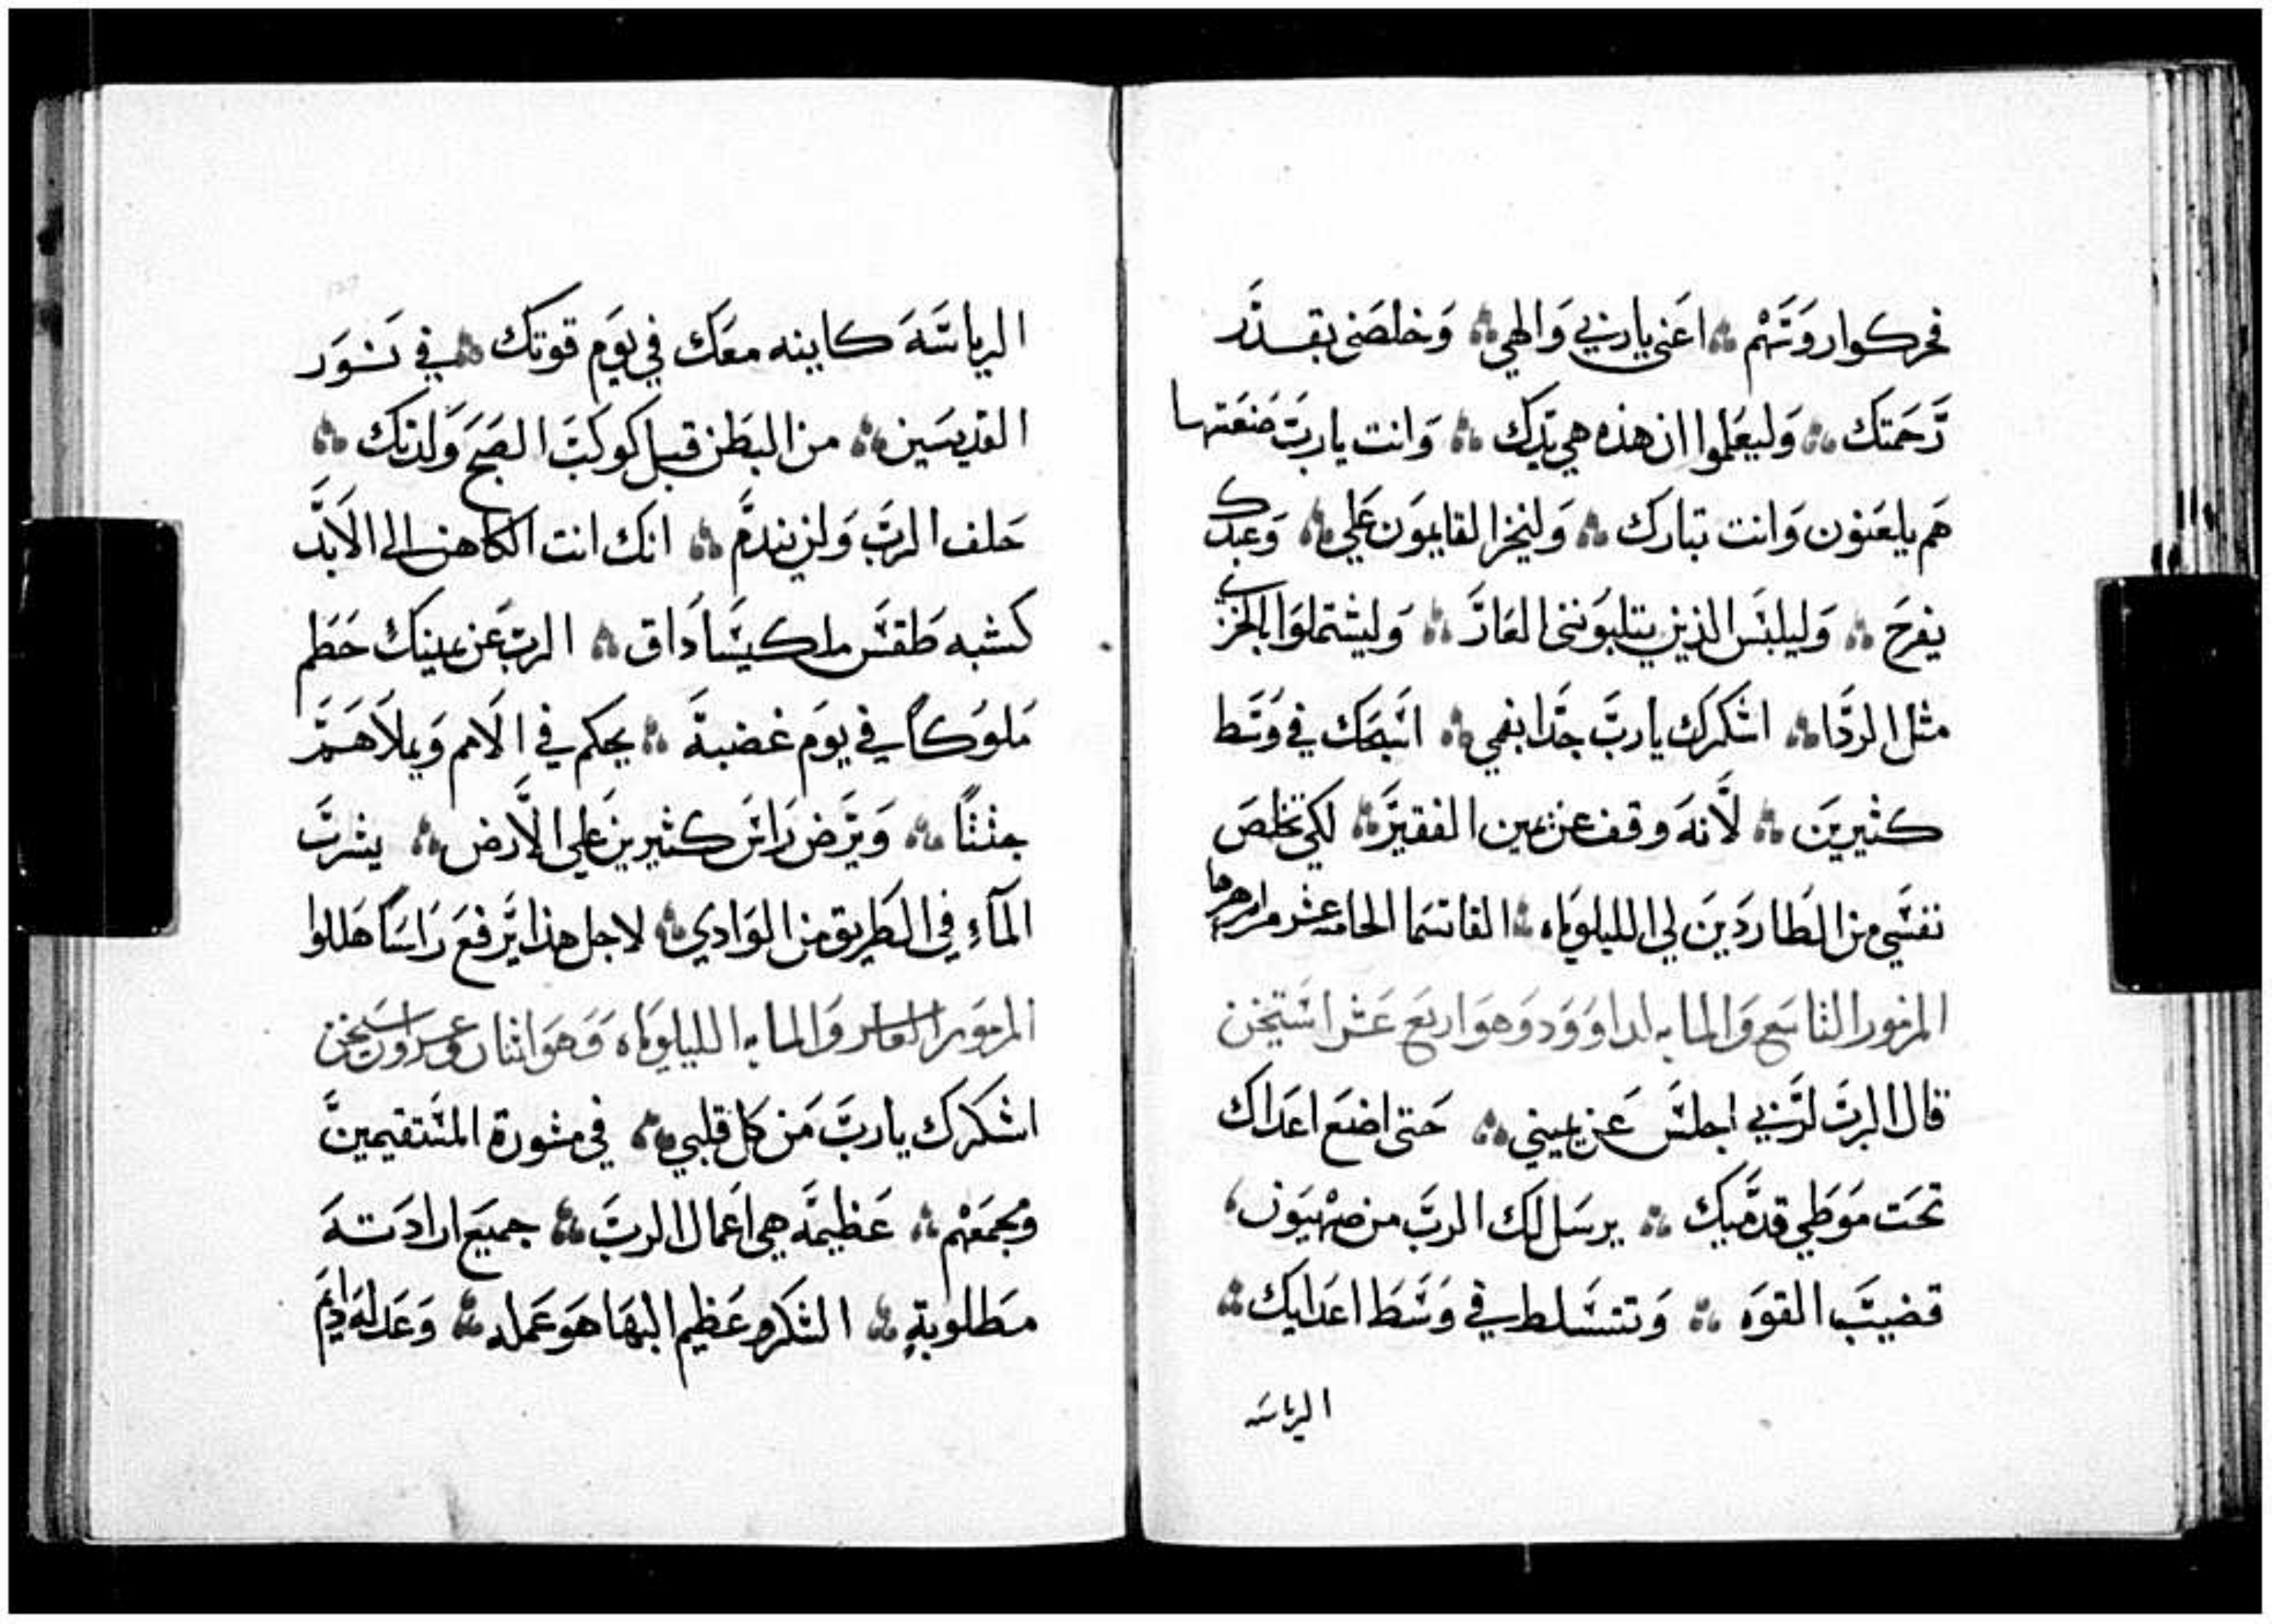 فحركوا روسهم ؞ اعني يا ربي والهي ؞ وخلصني بقدر
رحمتك ؞ وليعلموا ان هذه هي يدك ؞ وانت يا رب صنعتها
هم يلعنون وانت تبارك ؞ وليخز القايمون علي ؞ وعبدك
يفرح ؞ وليلبس الذين يتلبونني العار ؞ وليشتملوا بالخزي
مثل الردا ؞ اشكرك يا رب جدا بفمي ؞ اسبحك في وسط
كثيرين ؞ لانه وقف عن يمين الفقير ؞ لكي تخلص
نفسي من الطاردين لي الليلوياه ؞ القاتسما الحادي عشر مزامرها
المزمور التاسع والمايه لداوود وهو اربع عشر استيخن
قال الرب لربي اجلس عن يميني ؞ حتى اضع اعداك
تحت موطي قدميك ؞ يرسل لك الرب من صهيون
قضيب القوه ؞ وتتسلط في وسط اعدايك ؞
الرياسه
الرياسة كاينه معك في يوم قوتك ؞ في نور
القديسين ؞ من البطن قبل كوكب الصبح ولدتك ؞
حلف الرب ولن يندم ؞ انك انت الكاهن الى الابد
كشبه طقس ملكيساداق ؞ الرب عن يمينك حطم
ملوكا في يوم غضبة ؞ يحكم في الامم ويملاهم
جثثا ؞ ويرض راس كثيرين علي الارض ؞ يشرب
المآء في الطريق من الوادي ؞ لاجل هذا يرفع راسا هللوا
المزمور العاشر والمايه الليلوياه وهو اثنان وعشرون استيخن
اشكرك يا رب من كل قلبي ؞ في مشورة المستقيمين
ومجمعهم ؞ عظيمة هي اعمال الرب ؞ جميع ارادته
مطلوبة ؞ الشكر وعظيم البها هو عمله ؞ وعدله دايم